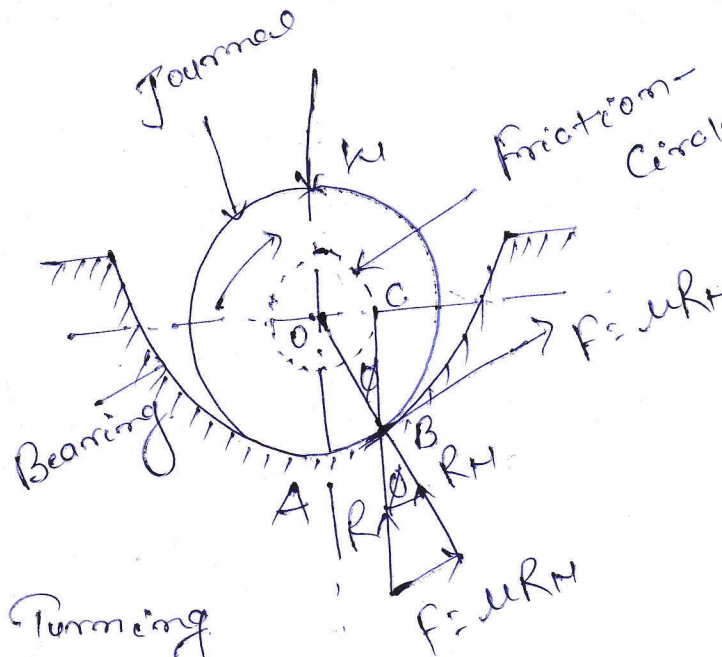 Journal
W
Friction-
Circl
O
C
F = μRN
Bearing
φ
B
A
φ
RN
R
F = μRN
Turning